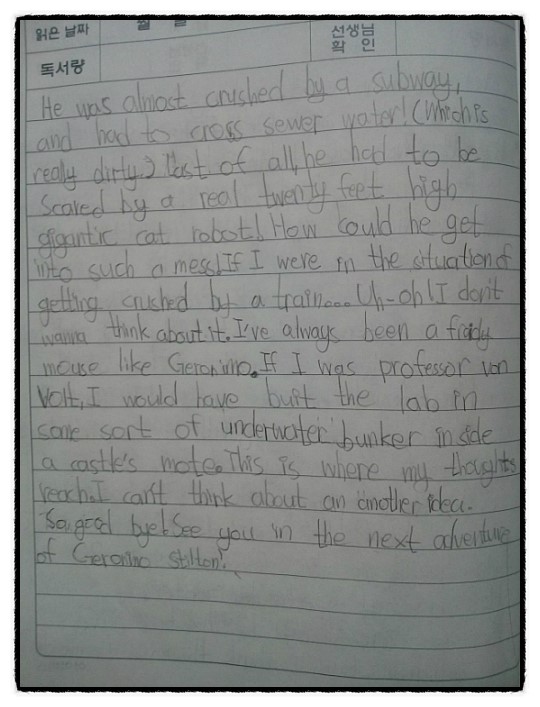 읽은 날짜 월 일 선생님
확 인
독서량
He was almost crushed by a subway,
and had to cross sewer water! (Which is
really dirty.) Last of all, he had to be
scared by a real twenty feet high
gigantic cat robot! How could he get
into such a mess! If I were in the situation of
getting crushed by a train... Uh-oh! I don't
wanna think about it. I've always been a fraidy
mouse like Geronimo. If I was professor von
Volt, I would have built the lab in
some sort of underwater bunker inside
a castle's mote. This is where my thoughts
reach. I can't think about an another idea.
So, good bye! See you in the next adventure
of Geronimo Stilton!